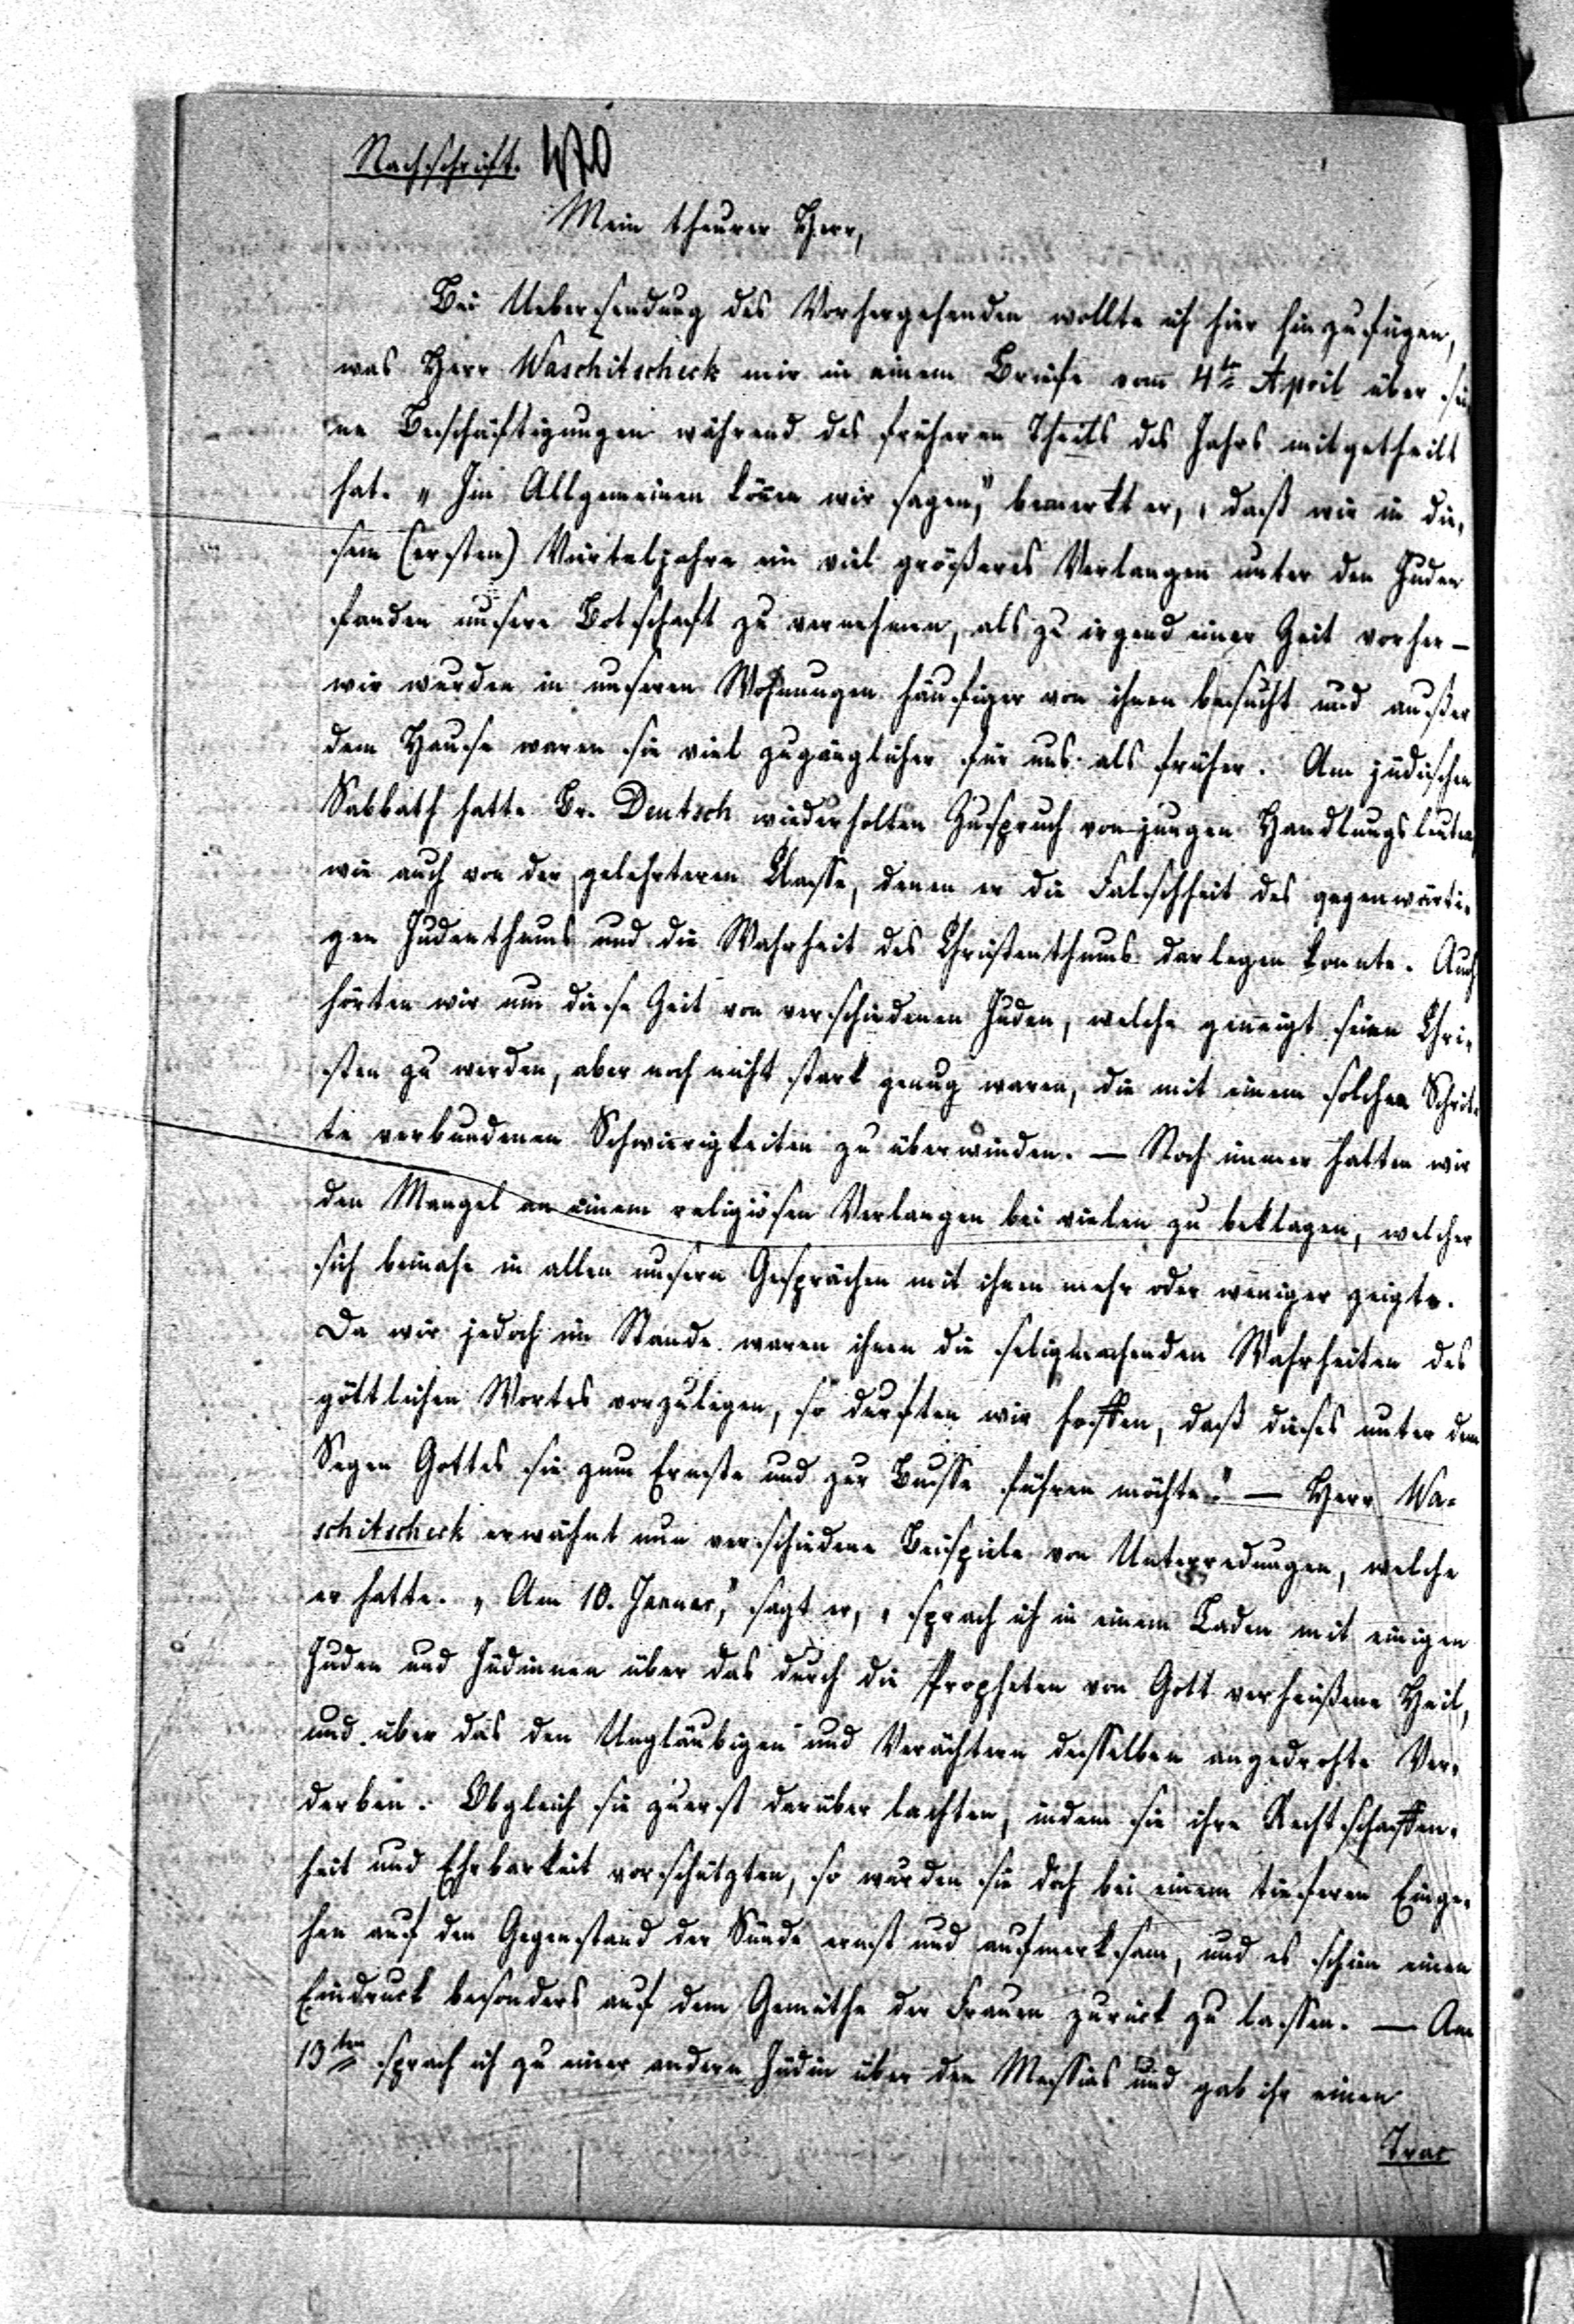 Nachschrift. 470
Mein theurer Herr,
Bei Uebersendung des Vorhergehenden wollte ich hier hinzufügen,
was Herr Waschitscheck mir in einem Briefe vom 4ten April über sei-
ne Beschäftigungen während des früheren Theils des Jahrs mitgetheilt
hat. „Im Allgemeinen können wir sagen," bemerkt er, „daß wir in die-
sem (ersten) Vierteljahre ein viel größeres Verlangen unter den Juden
fanden unsere Botschaft zu vernehmen, als zu irgend einer Zeit vorher –
wir wurden in unseren Wohnungen häufiger von ihnen besucht und außer
dem Hause waren sie viel zugänglicher für uns als früher. Am jüdischen
Sabbath hatte Br. Deutsch wiederholten Zuspruch von jungen Handlungsleuten
wie auch von der gelehrteren Classe, denen er die Falschheit des gegenwärti-
gen Judenthums und die Wahrheit des Christenthums darlegen konnte. Auch
hörten wir um diese Zeit von verschiedenen Juden, welche geneigt seien Chri-
sten zu werden, aber noch nicht stark genug waren, die mit einem solchen Schrit-
te verbundenen Schwierigkeiten zu überwinden. — Noch immer hatten wir
den Mangel an einem religiösen Verlangen bei vielen zu beklagen, welcher
sich beinahe in allen unsern Gesprächen mit ihnen mehr oder weniger zeigte.
Da wir jedoch im Stande waren ihnen die seligmachenden Wahrheiten des
göttlichen Wortes vorzulegen, so durften wir hoffen, daß dieses unter dem
Segen Gottes sie zum Ernste und zur Busse führen möchte." — Herr Wa-
schitscheck erwähnt nun verschiedene Beispiele von Unterredungen, welche
er hatte. „Am 10. Januar," sagt er, „sprach ich in einem Laden mit einigen
Juden und Jüdinnen über das durch die Propheten von Gott verheißene Heil,
und über das den Ungläubigen und Verächtern desselben angedrohte Ver-
derben. Obgleich sie zuerst darüber lachten, indem sie ihre Rechtschaffen-
heit und Ehrbarkeit vorschützten, so wurden sie doch bei einem tieferen Einge-
hen auf den Gegenstand der Sünde ernst und aufmerksam, und es schien einen
Eindruck besonders auf dem Gemüthe der Frauen zurück zu lassen. — Am
13ten sprach ich zu einer andern Jüdin über den Messias und gab ihr einen
Trac